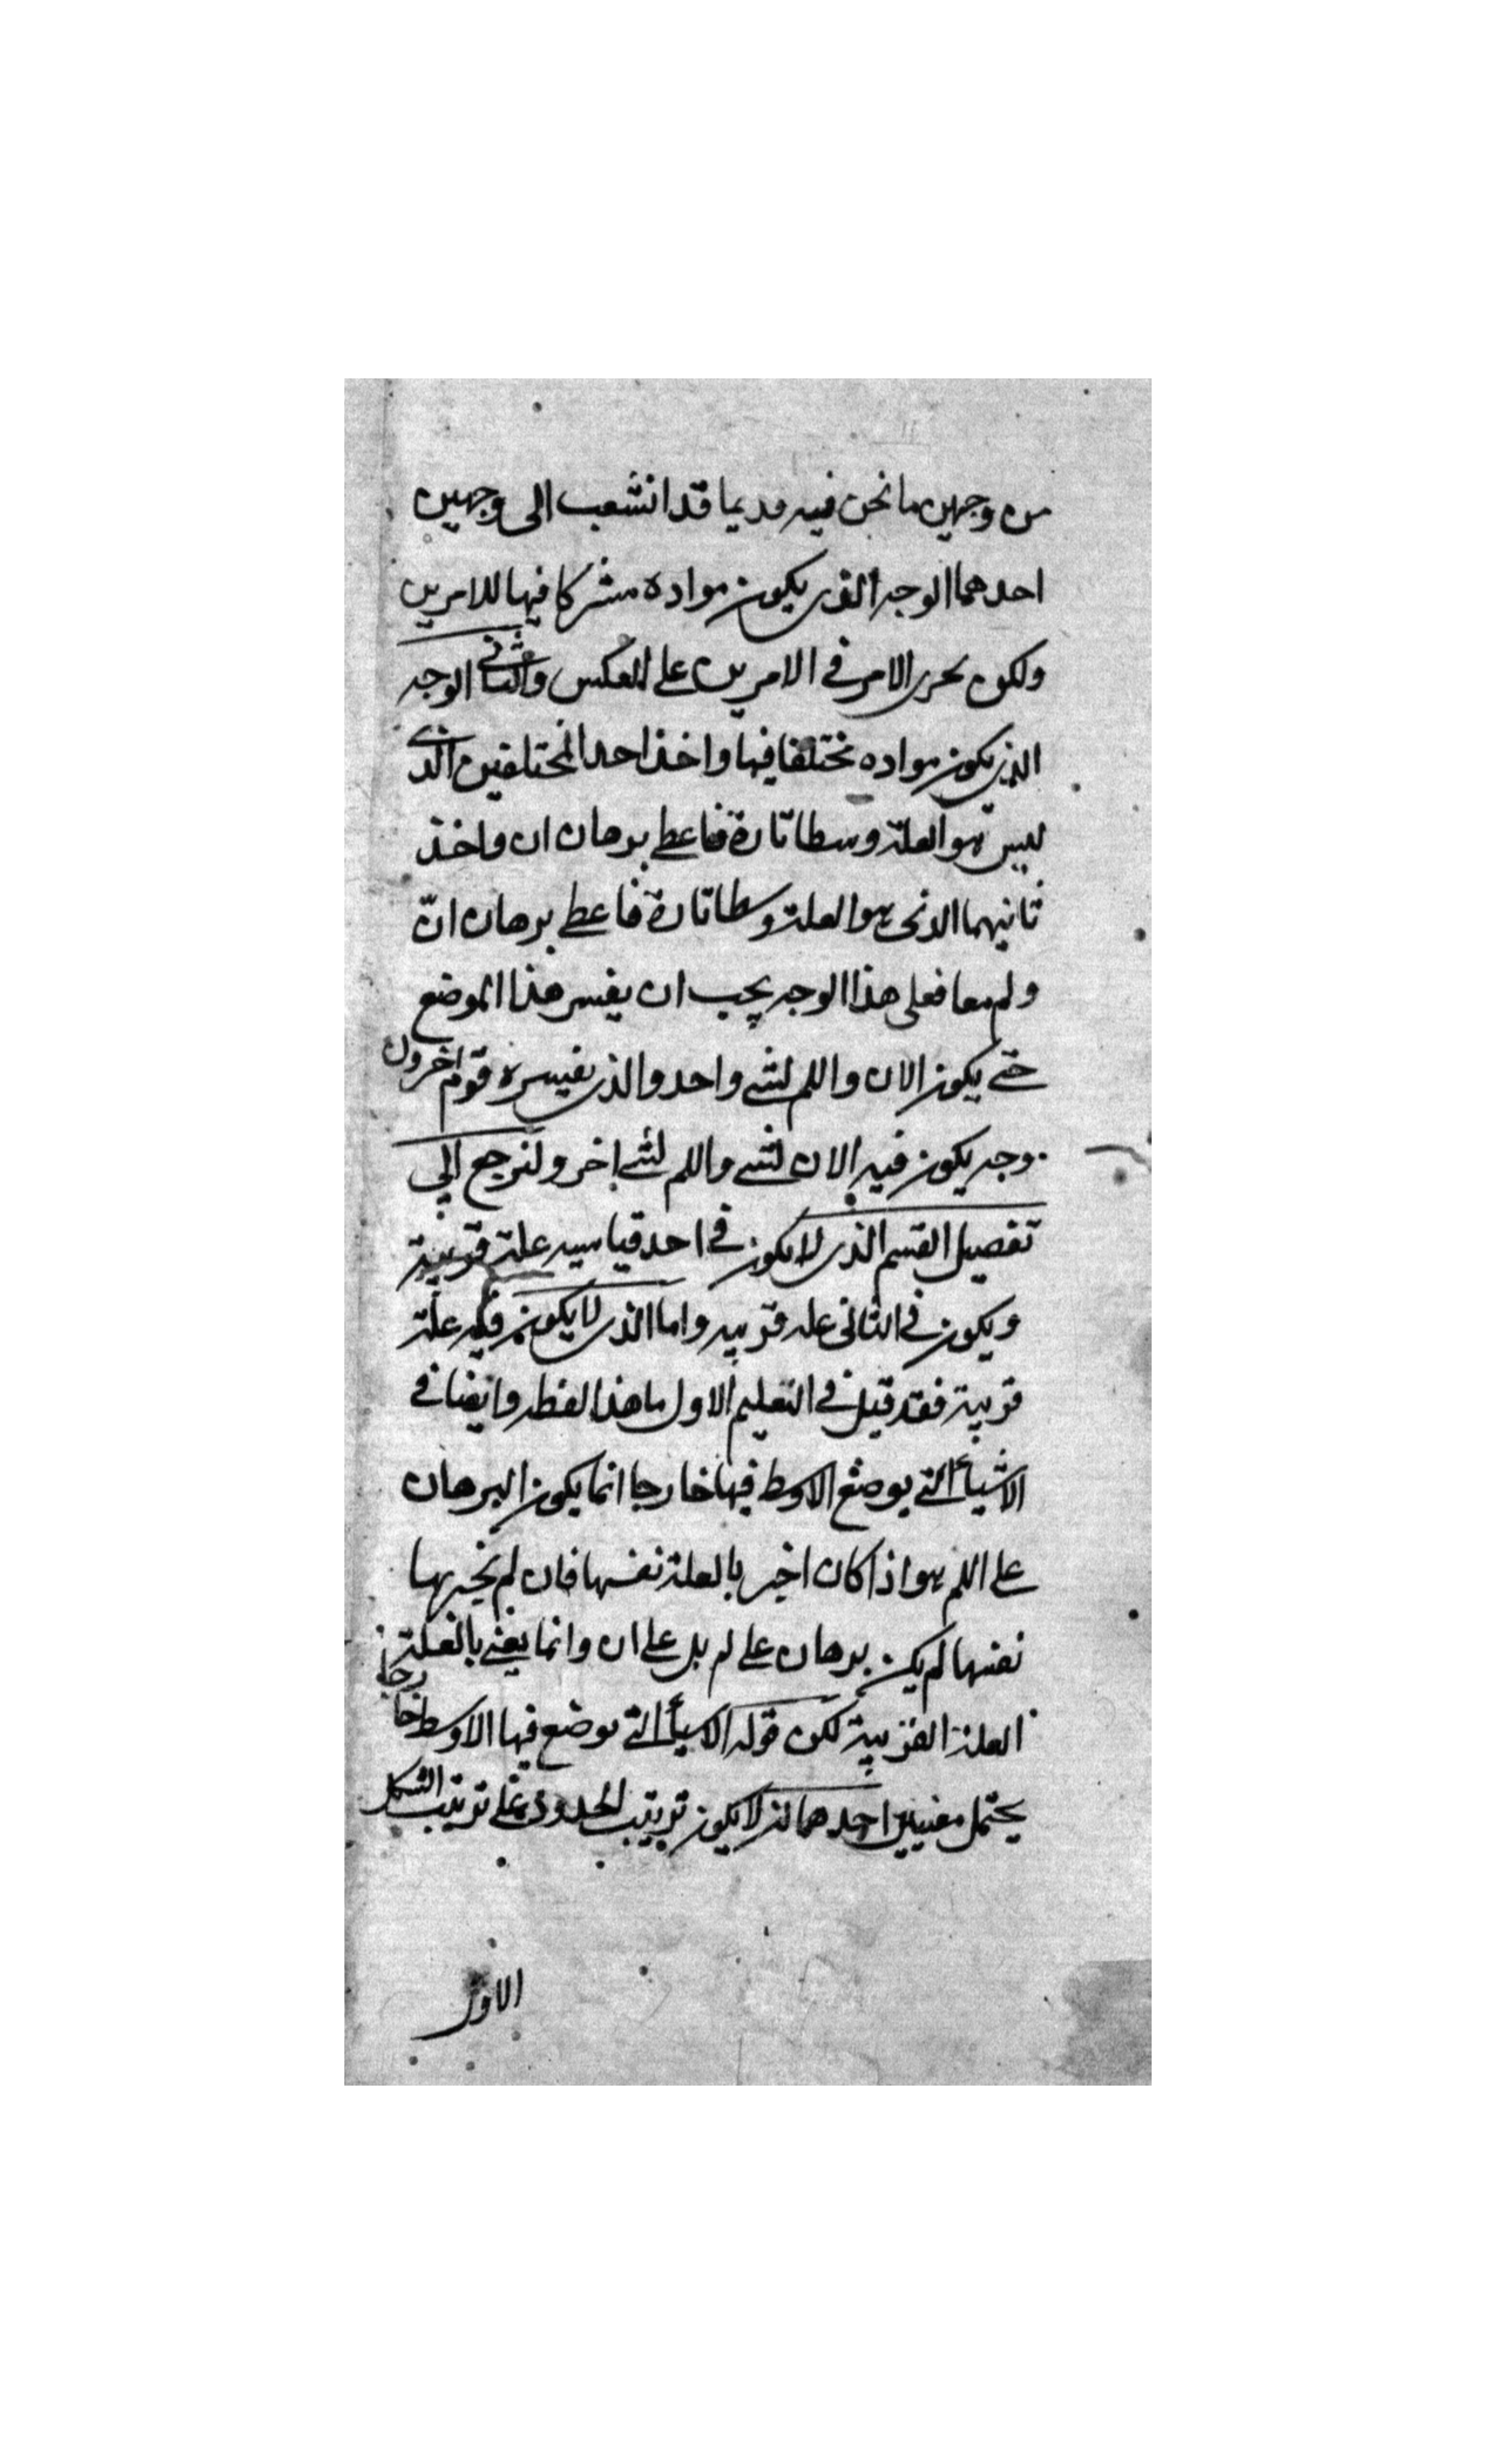 من وجهين ما نحن فيه مديما قد انشعب الى وجهين
احدهما الوجه الذى يكون مواده مشركا فيها للامرين
ولكن يحرى الامر فى الامرين على العكس والثانى الوجه
الذى يكون مواده مختلفا فيها واخذ احد المختلفين الذى
ليس هو العلة وسطا تارة فاعطى برهان ان واخذ
ثانيهما الذى هو العلة وسطا تارة فاعطى برهان انّ
ولم معا فعلى هذا الوجه يجب ان يفسر هذا الموضع
حتى يكون الان واللم لشى واحد والذى يفسره قوم اخرون
وجه يكون فيه الان لشى واللم لشى اخر ولنرجع الى
تفصيل القسم الذى لا يكون فى احد قياسيه علة قريبة
ويكون فى الثانى عله قريبه واما الذى لا يكون فيه علة
قريبة فقد قيل فى التعليم الاول ما هذا لفظه وايضا فى
الاشيأ التى يوضع الاوسط فيها خارجا انما يكون البرهان
على اللم هو اذا كان اخبر بالعلة نفسها فان لم يخبر بها
نفسها لم يكن برهان على لم بل على ان وانما يعنى بالعلة
العلة القريبة لكن قوله الاشيأ التى يوضع فيها الاوسط خارجا
يحتمل معنيين احدهما ان لا يكون ترتيب الحدود على ترتيب الشكل
الاول